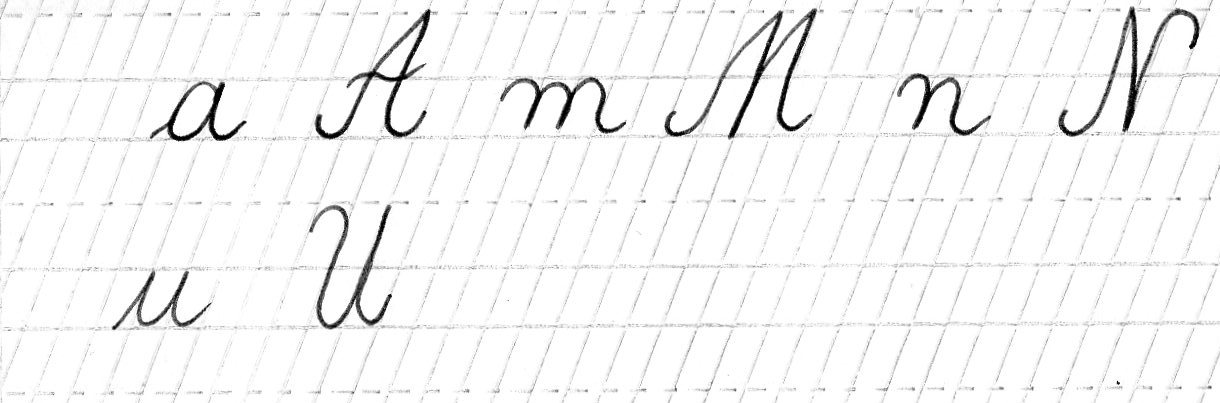 a A m M n N
u U